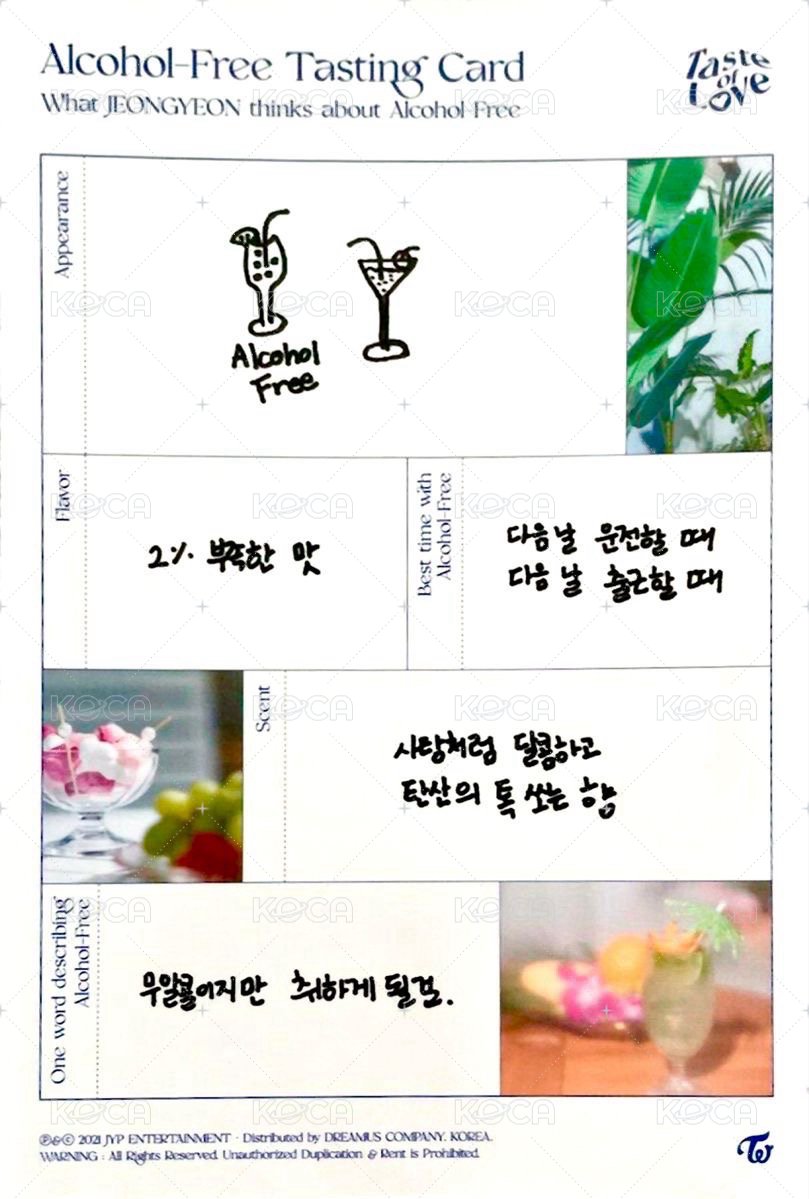 Alcohol-Free Tasting Card
What JEONGYEON thinks about Alcohol-Free
Taste
of
Love
Appearance
Alcohol
Free
Flavor
2% 부족한 맛
Best time with
Alcohol-Free
다음날 운전할 때
다음 날 출근할 때
Scent
사탕처럼 달콤하고
탄산의 톡 쏘는 향
One word describing
Alcohol-Free
무알콜이지만 취하게 될걸.
℗&© 2021 JYP ENTERTAINMENT · Distributed by DREAMUS COMPANY. KOREA.
WARNING : All Rights Reserved. Unauthorized Duplication & Rent is Prohibited.
KOCA